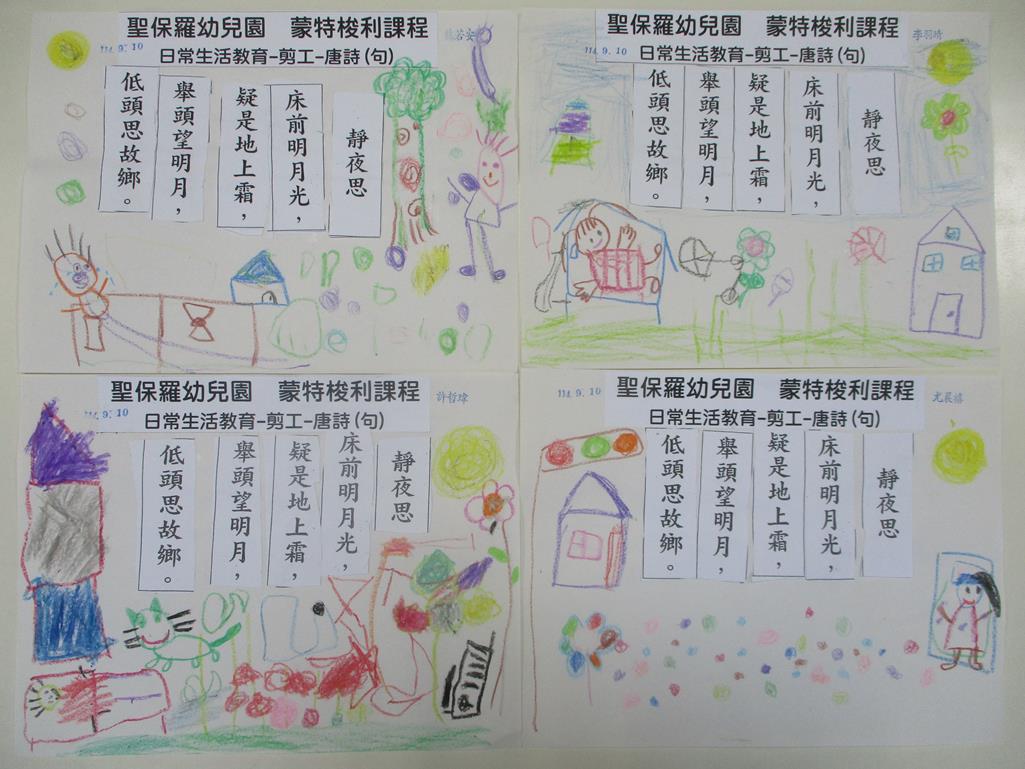 聖保羅幼兒園　蒙特梭利課程
114. 9. 10
日常生活教育–剪工–唐詩(句)
靜夜思
床前明月光，
疑是地上霜，
舉頭望明月，
低頭思故鄉。
聖保羅幼兒園　蒙特梭利課程
李羽晴
114. 9. 10
日常生活教育–剪工–唐詩(句)
靜夜思
床前明月光，
疑是地上霜，
舉頭望明月，
低頭思故鄉。
聖保羅幼兒園　蒙特梭利課程
許哲瑋
114. 9. 10
日常生活教育–剪工–唐詩(句)
靜夜思
床前明月光，
疑是地上霜，
舉頭望明月，
低頭思故鄉。
聖保羅幼兒園　蒙特梭利課程
114. 9. 10
日常生活教育–剪工–唐詩(句)
靜夜思
床前明月光，
疑是地上霜，
舉頭望明月，
低頭思故鄉。